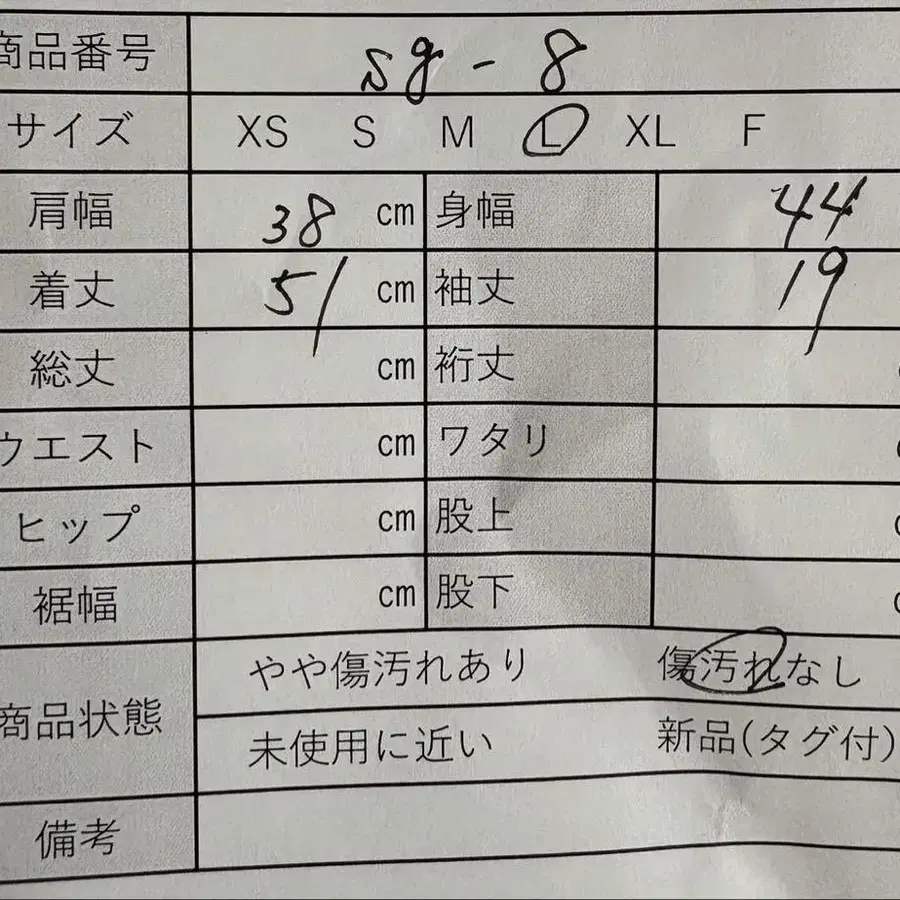 商品番号 sg - 8
サイズ XS S M L XL F
肩幅 38 cm 身幅 44
着丈 51 cm 袖丈 19
総丈 cm 裄丈
ウエスト cm ワタリ
ヒップ cm 股上
裾幅 cm 股下
商品状態 やや傷汚れあり 傷汚れなし
未使用に近い 新品(タグ付)
備考